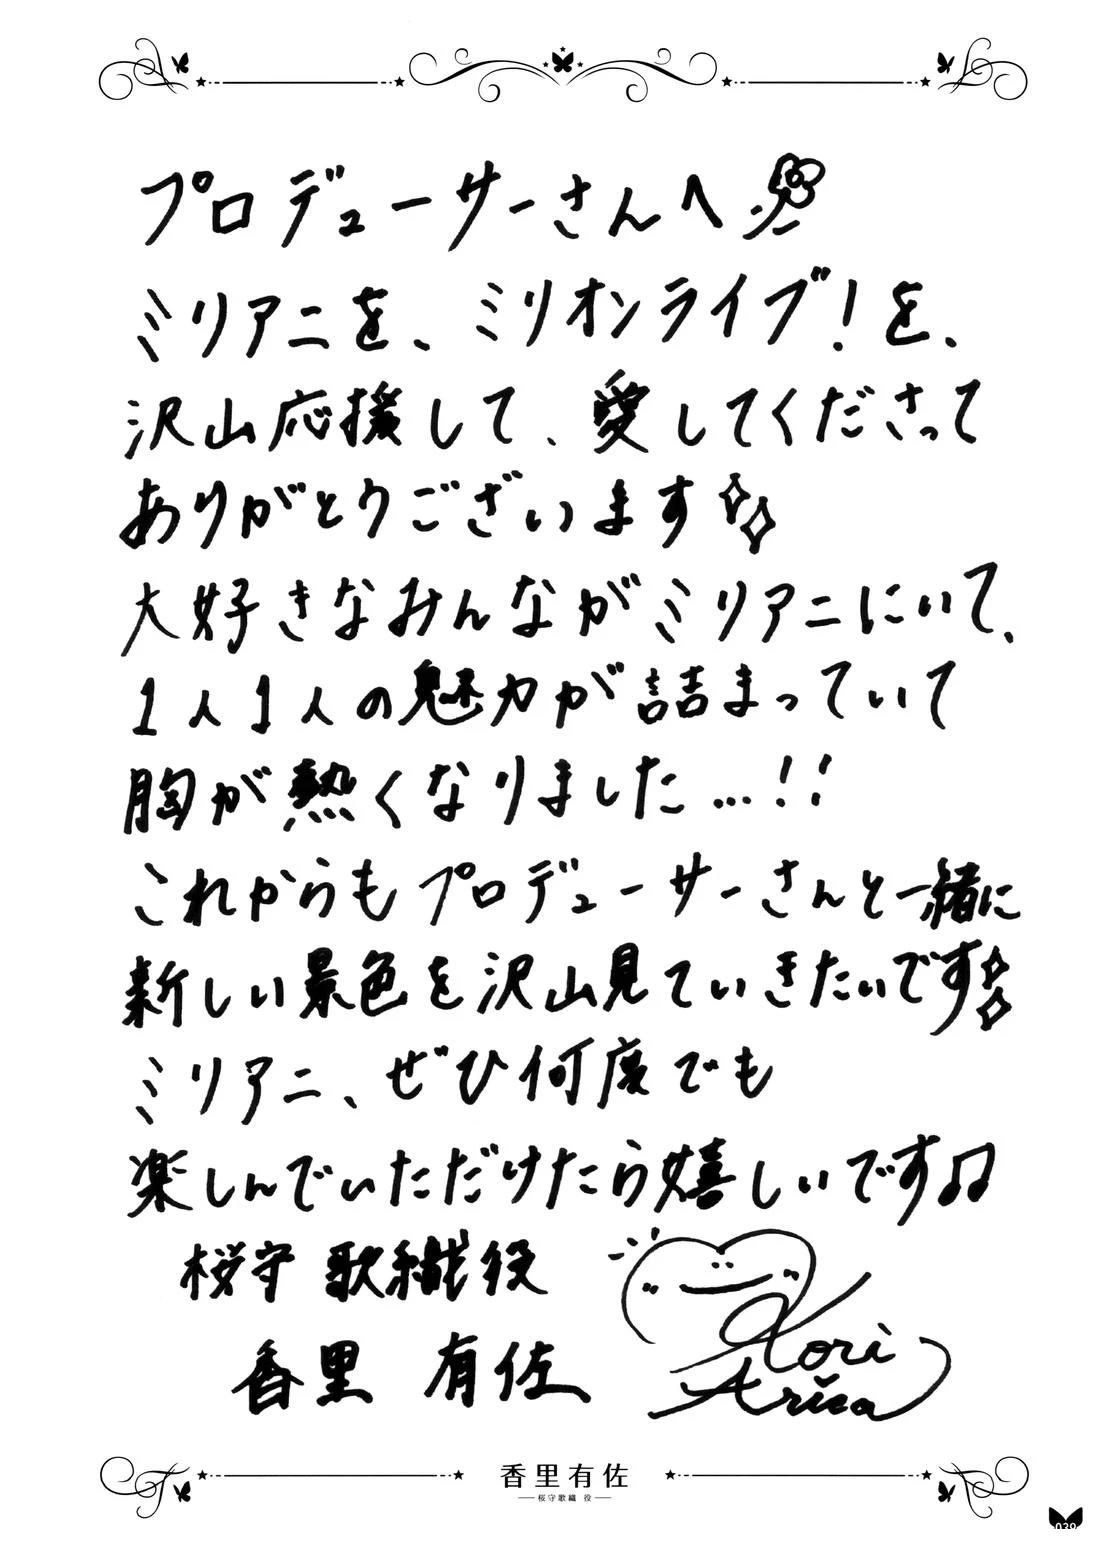 プロデューサーさんへ
ミリアニを、ミリオンライブ!を、
沢山応援して、愛してくださって
ありがとうございます
大好きなみんながミリアニにいて、
1人1人の魅力が詰まっていて
胸が熱くなりました…!!
これからもプロデューサーさんと一緒に
新しい景色を沢山見ていきたいです
ミリアニ、ぜひ何度でも
楽しんでいただけたら嬉しいです♫
桜守 歌織役
香里 有佐
Kori
Arisa
香里有佐
桜守歌織 役
039